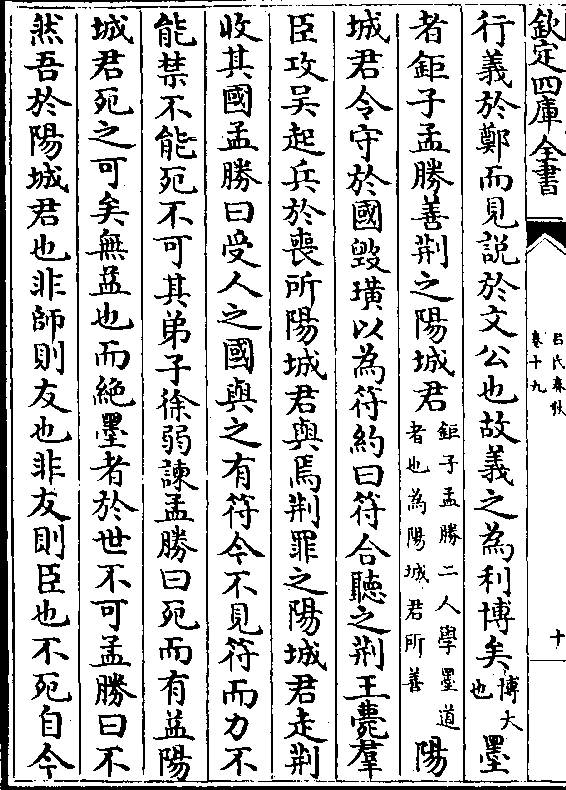 欽定四庫全書
呂氏春秋
卷十九
十
行義於鄭而見說於文公也故義之為利博矣博大也墨
者鉅子孟勝善荆之陽城君鉅子孟勝二人學墨道者也為陽城君所善陽
城君令守於國毀璜以為符約曰符合聽之荆王薨羣
臣攻吳起兵於喪所陽城君與焉荆罪之陽城君走荆
收其國孟勝曰受人之國與之有符今不見符而力不
能禁不能死不可其弟子徐弱諫孟勝曰死而有益陽
城君死之可矣無益也而絶墨者於世不可孟勝曰不
然吾於陽城君也非師則友也非友則臣也不死自今